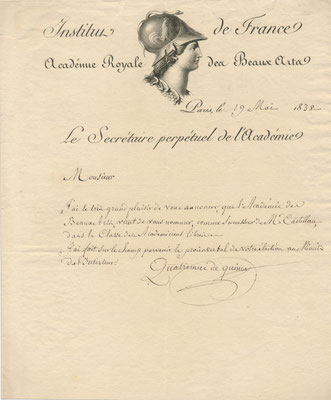 Institut de France
Académie Royale des Beaux Arts
Paris, le 19 Mai 1838
Le Secrétaire perpétuel de l'Académie
Monsieur
J'ai le très grand plaisir de vous annoncer que l'Académie des
Beaux arts, vient de vous nommer, comme successeur de Mr Castellan,
dans la Classe des Académiciens libres.
J'ai fait sur le champ parvenir le procès verbal de votre élection au Ministre
de l'Intérieur.
Quatremere de Quincy